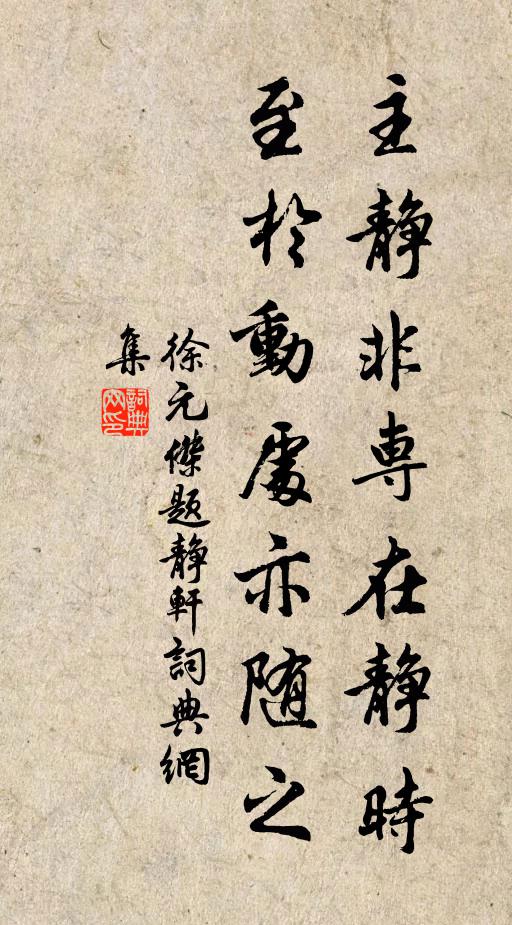 主静非専在静時
至於動處亦随之
徐元傑题静軒詞典網
集
詞典網印